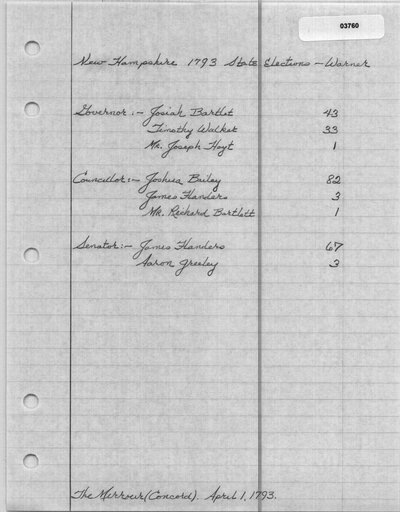 03760
New Hampshire 1793 State Elections - Warner
Governor :- Josiah Bartlet 43
Timothy Walker 33
Mr. Joseph Hoyt 1
Councillor :- Joshua Bailey 82
James Flanders 3
Mr. Richard Bartlett 1
Senator :- James Flanders 67
Aaron Greeley 3
The Mirrour (Concord). April 1, 1793.